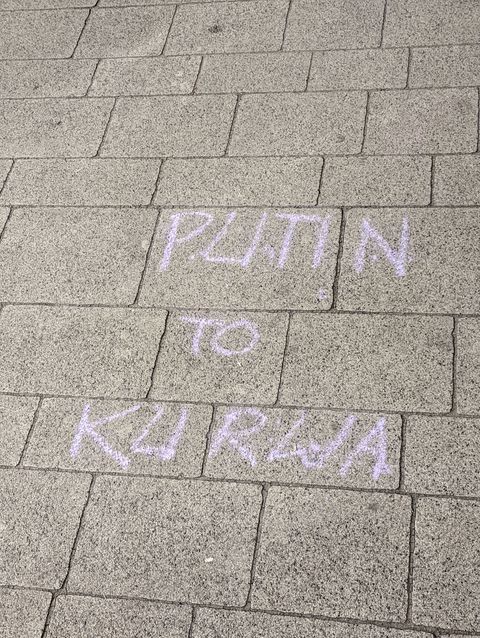 PUTIN
TO
KURWA